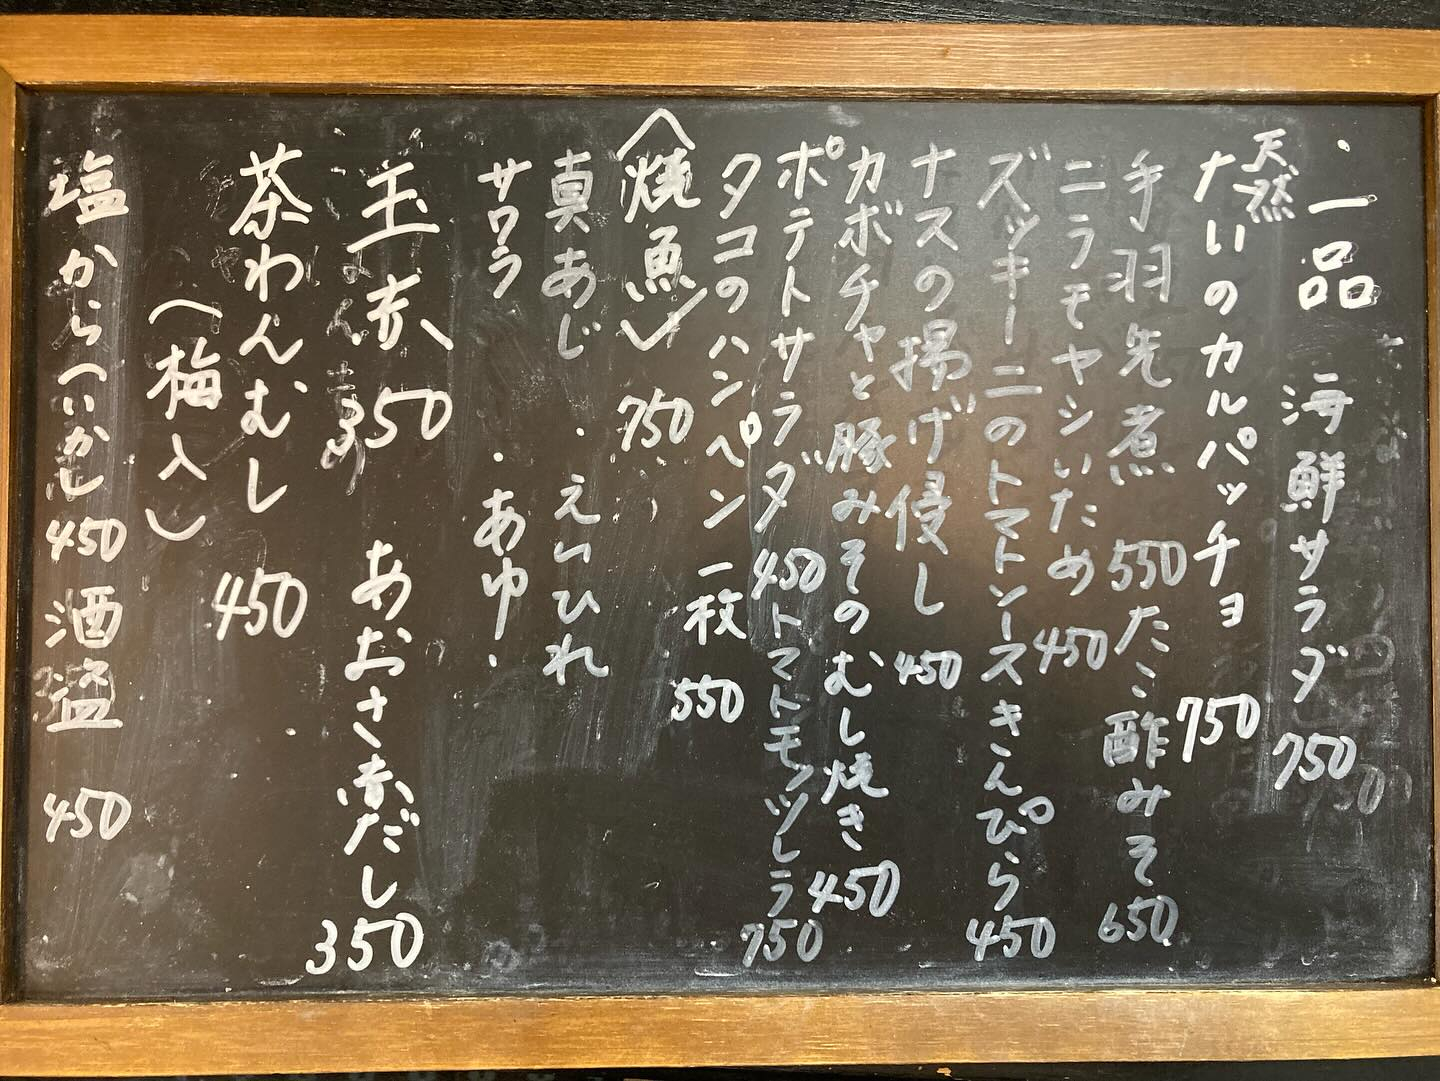 ・一品 海鮮サラダ 750
天然
たいのカルパッチョ 750
手羽先煮 550 たこ酢みそ 650
ニラモヤシいため 450
ズッキーニのトマトソースきんぴら 450
ナスの揚げ侵し 450
カボチャと豚みそのむし焼き 450
ポテトサラダ 450 トマトモッツレラ 750
タコのハンペン 一枚 550
〈焼魚〉 750
真あじ ・えいひれ
サワラ ・あゆ・
玉赤 350 あおさ赤だし 350
茶わんむし 450
(梅入)
塩から(いか) 450 酒盗 450